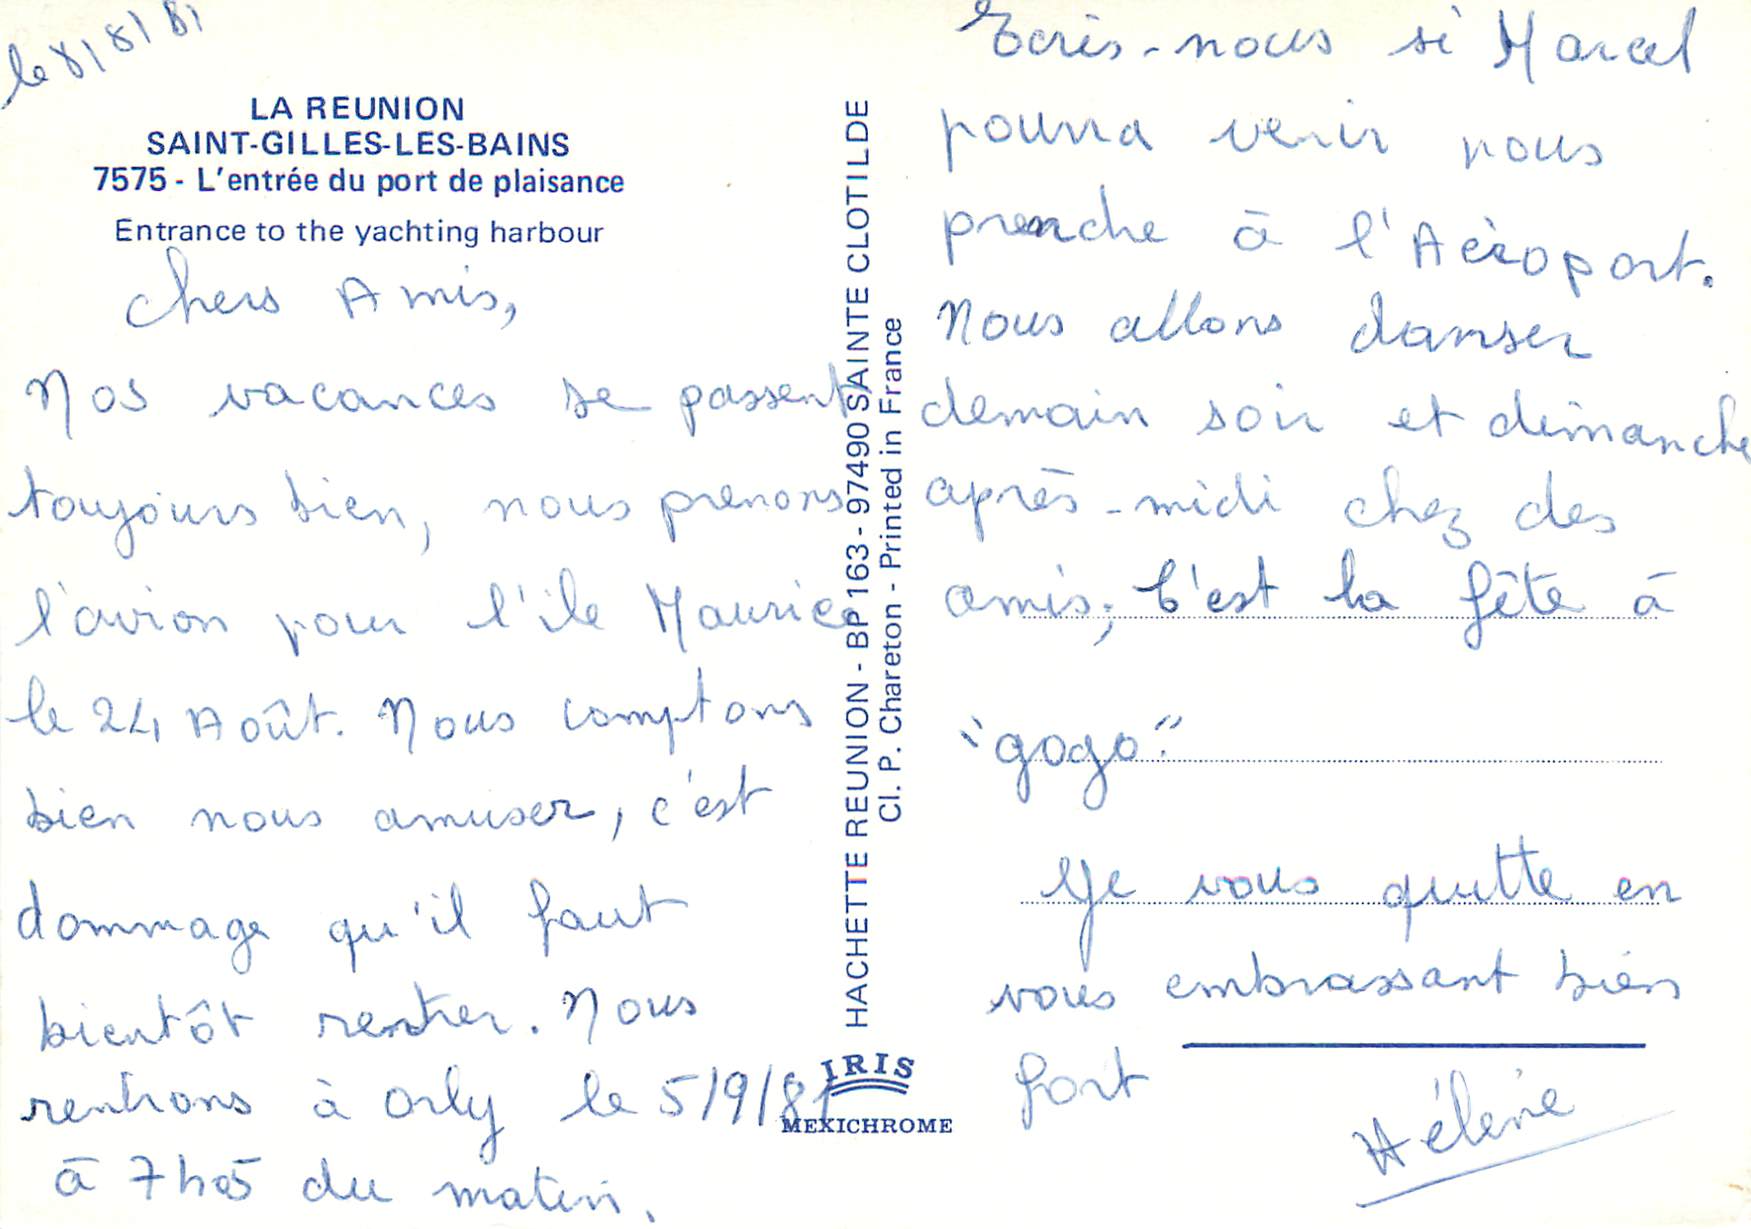 le 8/8/81
LA REUNION
SAINT-GILLES-LES-BAINS
7575 - L'entrée du port de plaisance
Entrance to the yachting harbour
Chers Amis,
Nos vacances se passent
toujours bien, nous prenons
l'avion pour l'ile Maurice
le 24 Août. Nous comptons
bien nous amuser, c'est
dommage qu'il faut
bientôt rentrer. Nous
rentrons à Orly le 5/9/81
à 7h05 du matin.
HACHETTE REUNION - BP 163 - 97490 SAINTE CLOTILDE
Cl. P. Chareton - Printed in France
IRIS
MEXICHROME
Ecris-nous si Marcel
pourra venir nous
prendre à l'Aéroport.
Nous allons danser
demain soir et dimanche
après-midi chez des
amis; C'est la fête à
"gogo".
Je vous quitte en
vous embrassant bien
fort
Hélène